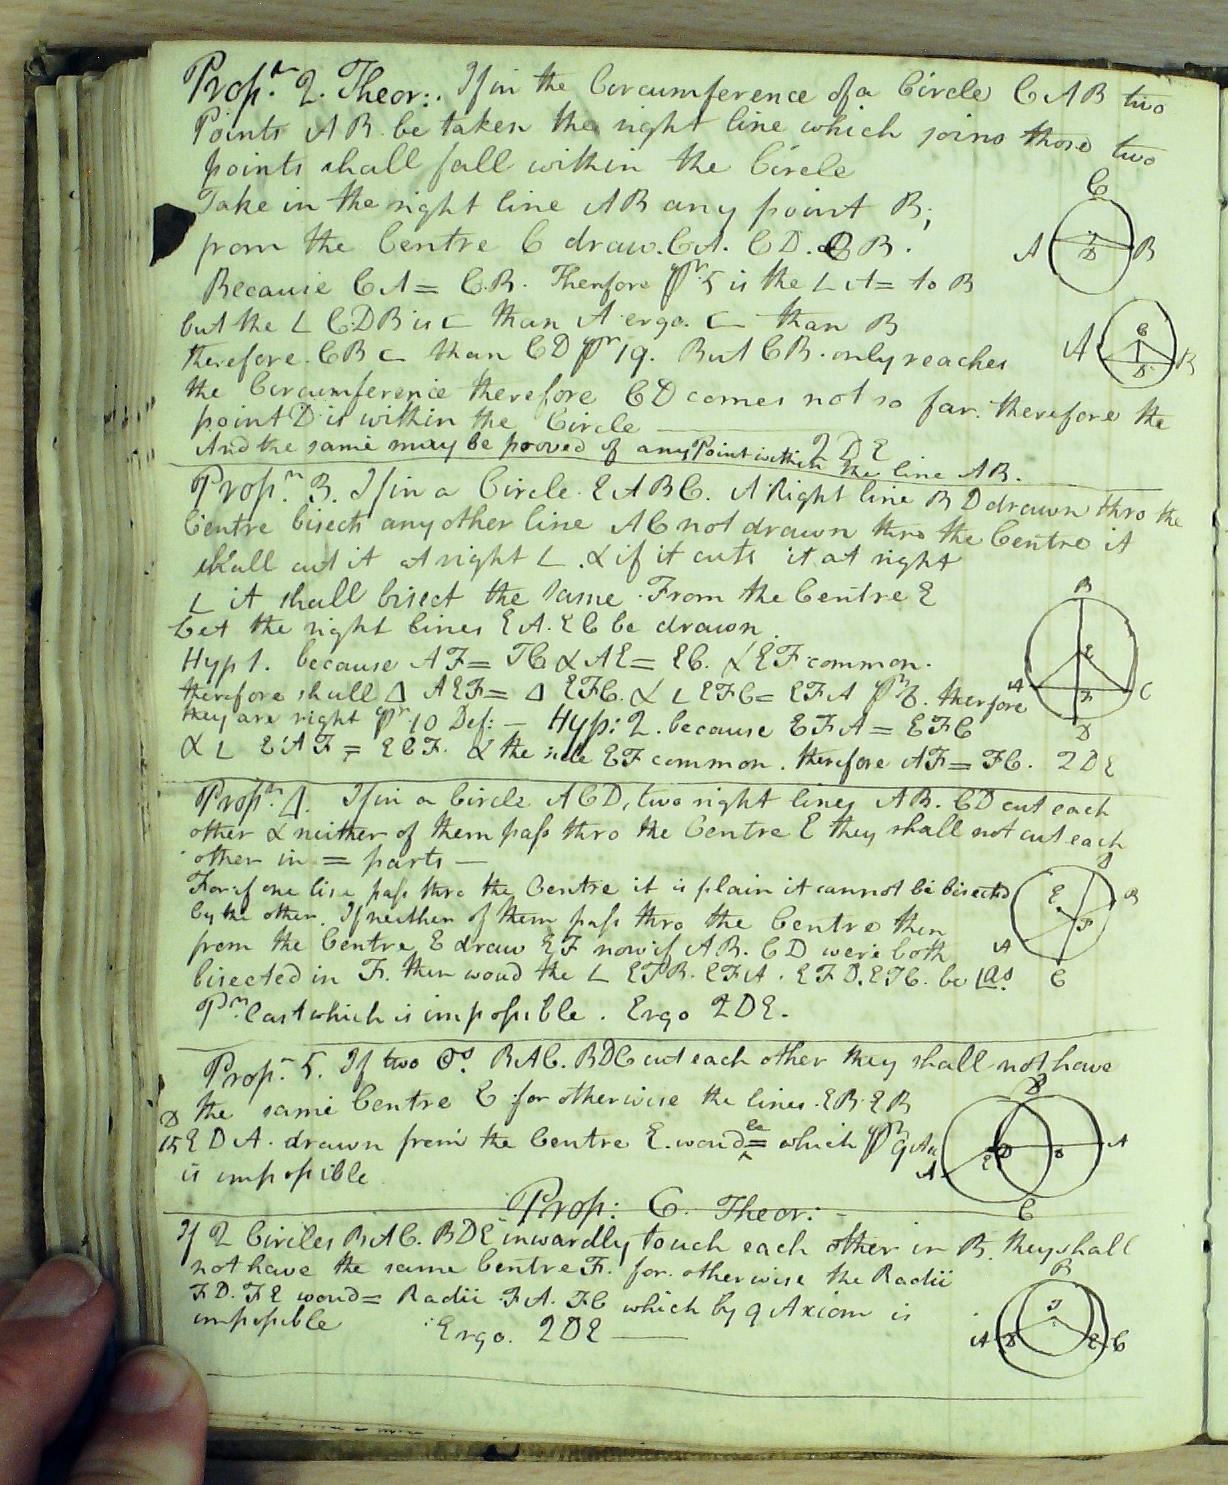 Propn. 2. Theor:. If in the Circumference of a Circle CAB two
Points AB be taken the right line which joins those two
points shall fall within the Circle
Take in the right line AB any point B;
from the Centre C draw. CA. CD. CB.
Because CA = CB. Therfore pr. 5 is the ∠ A = to B
but the ∠ CDB is ⊏ than A ergo. ⊏ than B
therefore. CB ⊏ than CD pr 19. But CB. only reaches
the Circumference therefore CD comes not so far. therefore the
point D is within the Circle — 2DE
And the same may be proved of any Point within the line AB.
Propn. 3. If in a Circle. EABC. A Right line BD drawn thro the
Centre bisects any other line AC not drawn thro the Centre it
shall cut it at right ∠. & if it cuts it at right
∠ it shall bisect the same. From the Centre E
Let the right lines EA. EC be drawn.
Hyp 1. because AF = FC & AE = EC. & EF common.
therefore shall Δ AEF = Δ EFC. & ∠ EFC = EFA pr 8. therfore
they are right pr 10 Def: — Hyp: 2. because EFA = EFC
& ∠ EAF = ECF. & the side EF common. therefore AF = FC. 2DE
Propn. 4. If in a Circle ACD, two right lines AB. CD cut each
other & neither of them pass thro the Centre E they shall not cut each
other in = parts —
For if one line pass thro the Centre it is plain it cannot be bisected
by the other. If neither of them pass thro the Centre then
from the Centre E draw EF now if AB. CD were both
bisected in F. then woud the ∠ EFB. EFA. EFD. EFC. be
Pr. last which is impossible. Ergo 2DE.
Propn. 5. If two ʘs. BAC. BDC cut each other they shall not have
the same Centre E for otherwise the lines. EB. EB
E D A. drawn from the Centre E. woud be = which pr 9 Ax
is impossible
Prop: 6. Theor: -
If 2 Circles BAC. BDE inwardly touch each other in B. they shall
not have the same Centre F. for. otherwise the Radii
FD. FE woud = Radii FA. FC which by 9 Axiom is
impossible Ergo. 2DE —
C
A
D
B
A
C
D
B
B
E
A
F
C
D
E
B
F
A
C
B
A
E
D
A
C
B
F
A
D
E
C